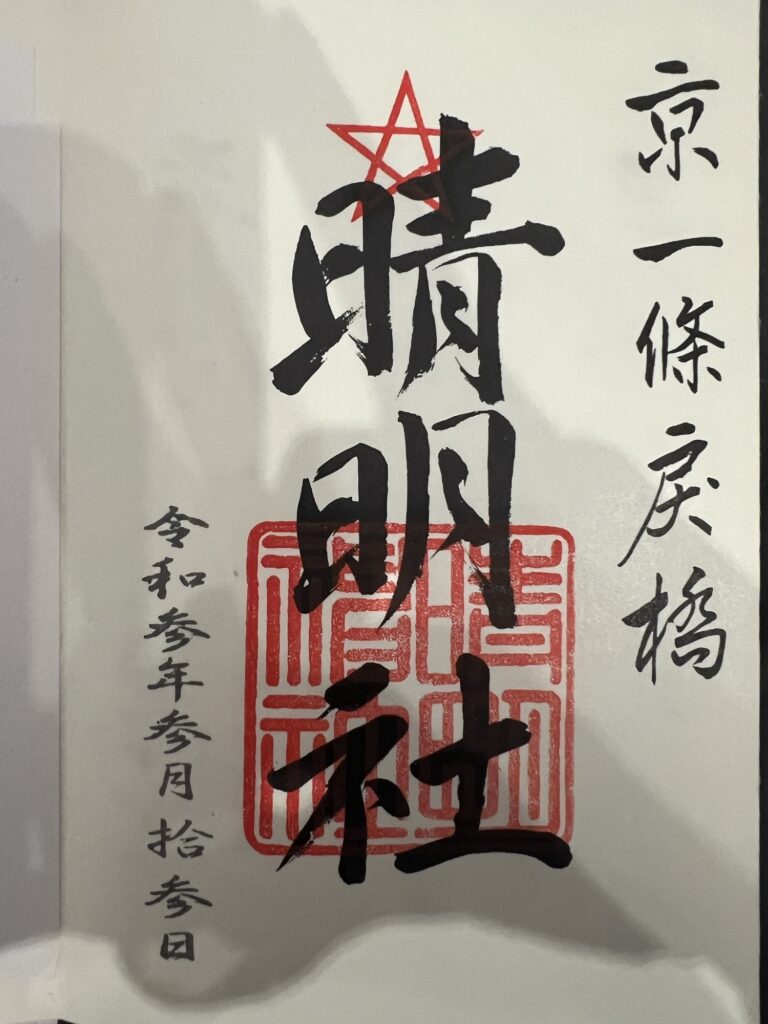 京一條戻橋
晴明社
晴明
令和参年参月拾参日